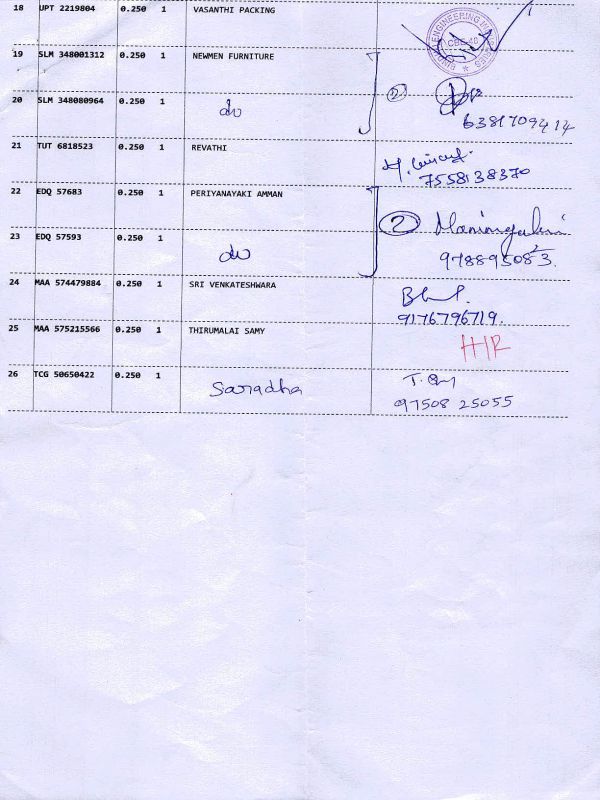 18 UPT 2219804 0.250 1 VASANTHI PACKING
ENGINEERING
CBE-40
19 SLM 348001312 0.250 1 NEWMEN FURNITURE
20 SLM 348080964 0.250 1 do 2
6381709414
21 TUT 6818523 0.250 1 REVATHI
7558138370
22 EDQ 57683 0.250 1 PERIYANAYAKI AMMAN
2
23 EDQ 57593 0.250 1 do
24 MAA 574479884 0.250 1 SRI VENKATESHWARA
9176796719.
25 MAA 575215566 0.250 1 THIRUMALAI SAMY
26 TCG 50650422 0.250 1 Saradha
97508 25055